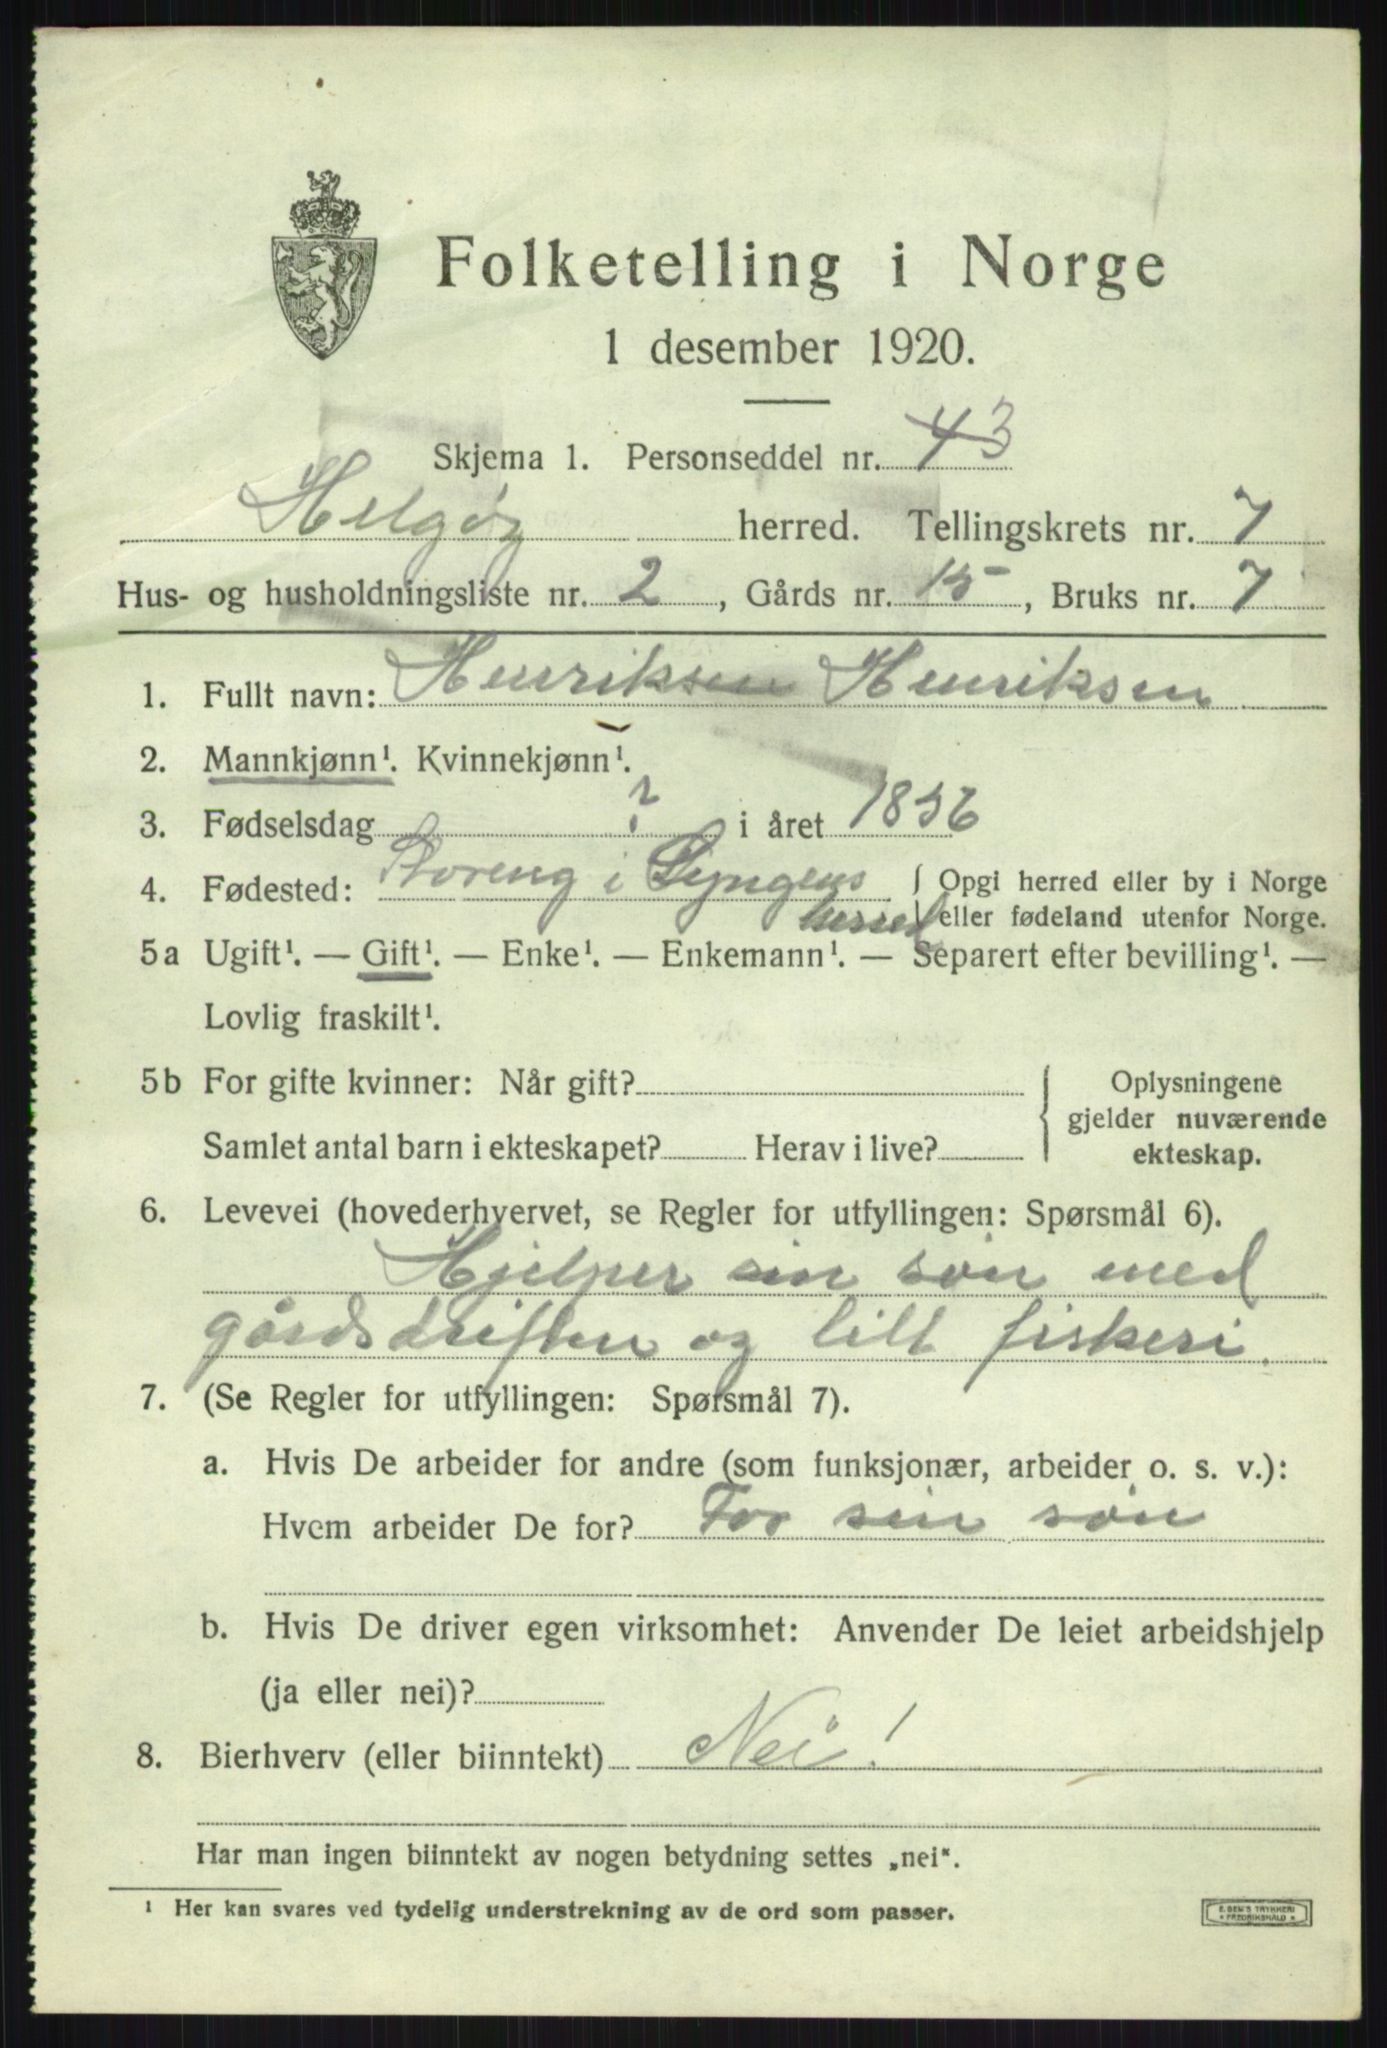 Folketelling i Norge
1 desember 1920.
Skjema 1. Personseddel nr. 43
Helgöy herred. Tellingskrets nr. 7
Hus- og husholdningsliste nr. 2, Gårds nr. 15, Bruks nr. 7
1. Fullt navn: Henriksen Henriksen
2. Mannkjønn¹. Kvinnekjønn¹.
3. Fødselsdag ? i året 1856
4. Fødested: Storeng i Lyngens { Opgi herred eller by i Norge
herred eller fødeland utenfor Norge.
5a Ugift¹. — Gift¹. — Enke¹. — Enkemann¹. — Separert efter bevilling¹. —
Lovlig fraskilt¹.
5b For gifte kvinner: Når gift? { Oplysningene
gjelder nuværende
Samlet antal barn i ekteskapet? Herav i live? ekteskap.
6. Levevei (hovederhvervet, se Regler for utfyllingen: Spørsmål 6).
Hjelper sin sön med
gårdsdriften og litt fiskeri.
7. (Se Regler for utfyllingen: Spørsmål 7).
a. Hvis De arbeider for andre (som funksjonær, arbeider o. s. v.):
Hvem arbeider De for? For sin sön
b. Hvis De driver egen virksomhet: Anvender De leiet arbeidshjelp
(ja eller nei)?
8. Bierhverv (eller biinntekt) Nei!
Har man ingen biinntekt av nogen betydning settes „nei“.
¹ Her kan svares ved tydelig understrekning av de ord som passer.
E. SEM'S TRYKKERI
* FREDRIKSHALD *